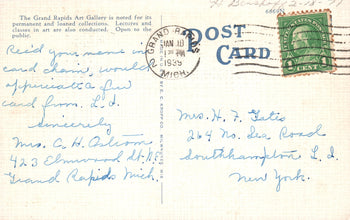 The Grand Rapids Art Gallery is noted for its
permanent and loaned collections. Lectures and
classes in art are also conducted. Open to the
public.
Rec'd your name in
card chain, would
appreciate a few
card from L. I.
Sincerely
Mrs. A. H. Ostrom
423 Elmwood St. N.E.
Grand Rapids Mich.
POST
CARD
GRAND RAPIDS
JAN 18
PM
1935
MICH.
1
Mrs. H. F. Gates
264 No. Sea Road
Southhampton L. I.
New York.